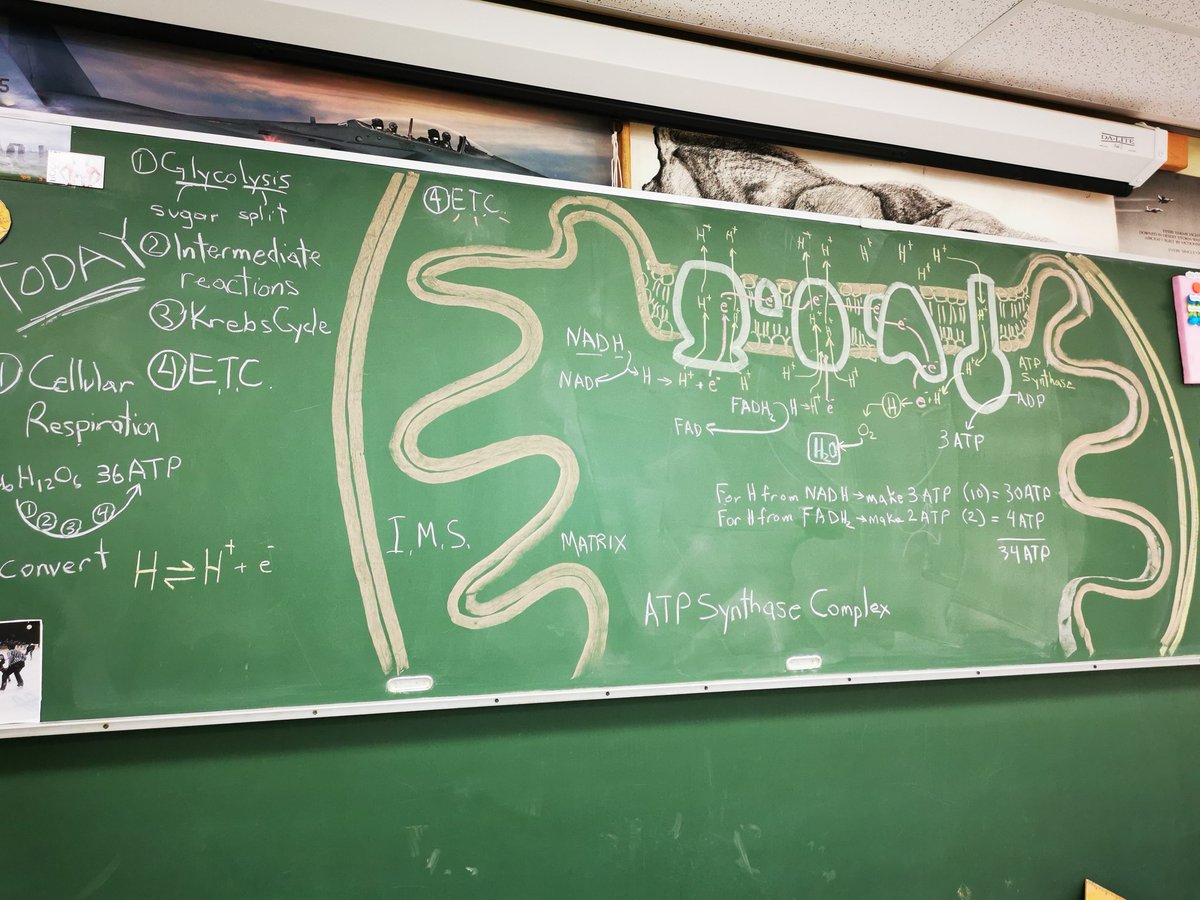 DA-LITE
5
① Glycolysis
sugar split
② Intermediate
reactions
③ Krebs Cycle
④ E.T.C.
TODAY
① Cellular
Respiration
₆H₁₂O₆ 36 ATP
① ② ③ ④
convert
H ⇌ H⁺ + e⁻
④ E.T.C.
I.M.S.
MATRIX
H⁺ H⁺ H⁺ H⁺ H⁺ H⁺ H⁺ H⁺
H⁺ e⁻ e⁻ H⁺ e⁻ H⁺
NADH
NAD H → H⁺ + e⁻ H⁺
H⁺ H⁺ e⁻ H⁺
FADH₂ H → H⁺ e
FAD
H ← e⁻ H⁺
O₂
H₂O
ATP
Synthase
ADP
3 ATP
For H from NADH → make 3 ATP (10) = 30 ATP
For H from FADH₂ → make 2 ATP (2) = 4 ATP
34 ATP
ATP Synthase Complex